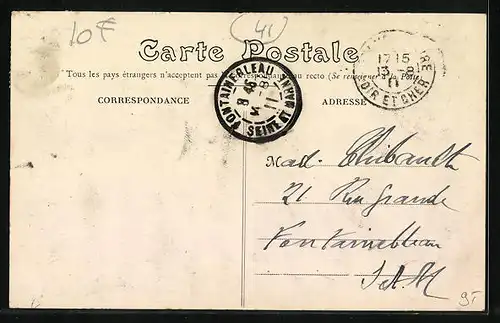 10F
(41)
Carte Postale
Tous les pays étrangers n'acceptent pas la correspondance au recto (Se renseigner à la Poste)
CORRESPONDANCE
ADRESSE
FONTAINEBLEAU
8 45
8
11
SEINE ET MARNE
17 15
13 - 8
11
LOIR ET CHER
Mad. Thibault
21 Rue Grande
Fontainebleau
S. & M
95